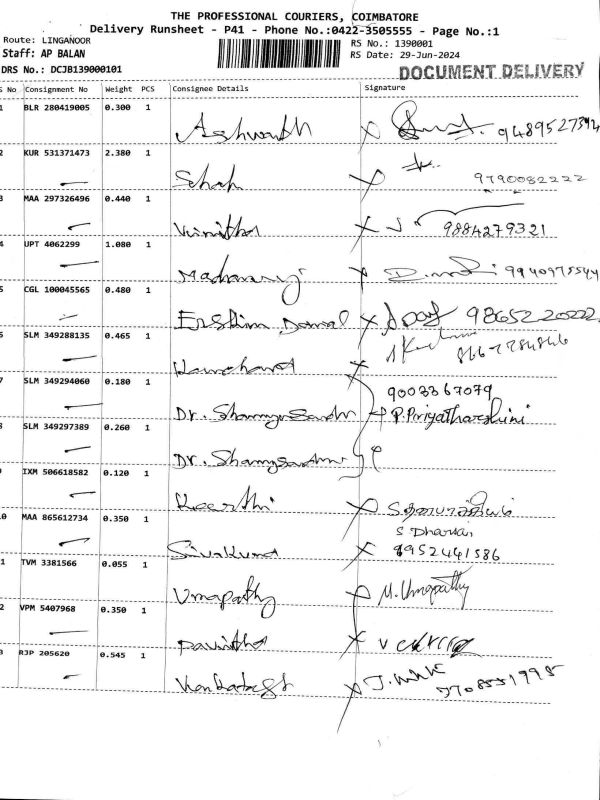 THE PROFESSIONAL COURIERS, COIMBATORE
Delivery Runsheet - P41 - Phone No.:0422-3505555 - Page No.:1
Route: LINGANOOR
RS No.: 1390001
Staff: AP BALAN
RS Date: 29-Jun-2024
DRS No.: DCJB139000101
DOCUMENT DELIVERY
S No Consignment No Weight PCS Consignee Details Signature
1 BLR 280419005 0.300 1 Ashwath
2 KUR 531371473 2.380 1 9790082222
3 MAA 297326496 0.440 1 Vinitha 9884279321
4 UPT 4062299 1.080 1
5 CGL 100045565 0.480 1 98652 20222
6 SLM 349288135 0.465 1
7 SLM 349294060 0.180 1 Dr. 9003367079
P. Priyatharshini
8 SLM 349297389 0.260 1 Dr.
9 IXM 506618582 0.120 1 Keerthi
10 MAA 865612734 0.350 1 Sivakumar S Dharani
9952441586
11 TVM 3381566 0.055 1 Umapathy M. Umapathy
12 VPM 5407968 0.350 1 Pavithra
13 RJP 205620 0.545 1 Venkatesh 7708551995